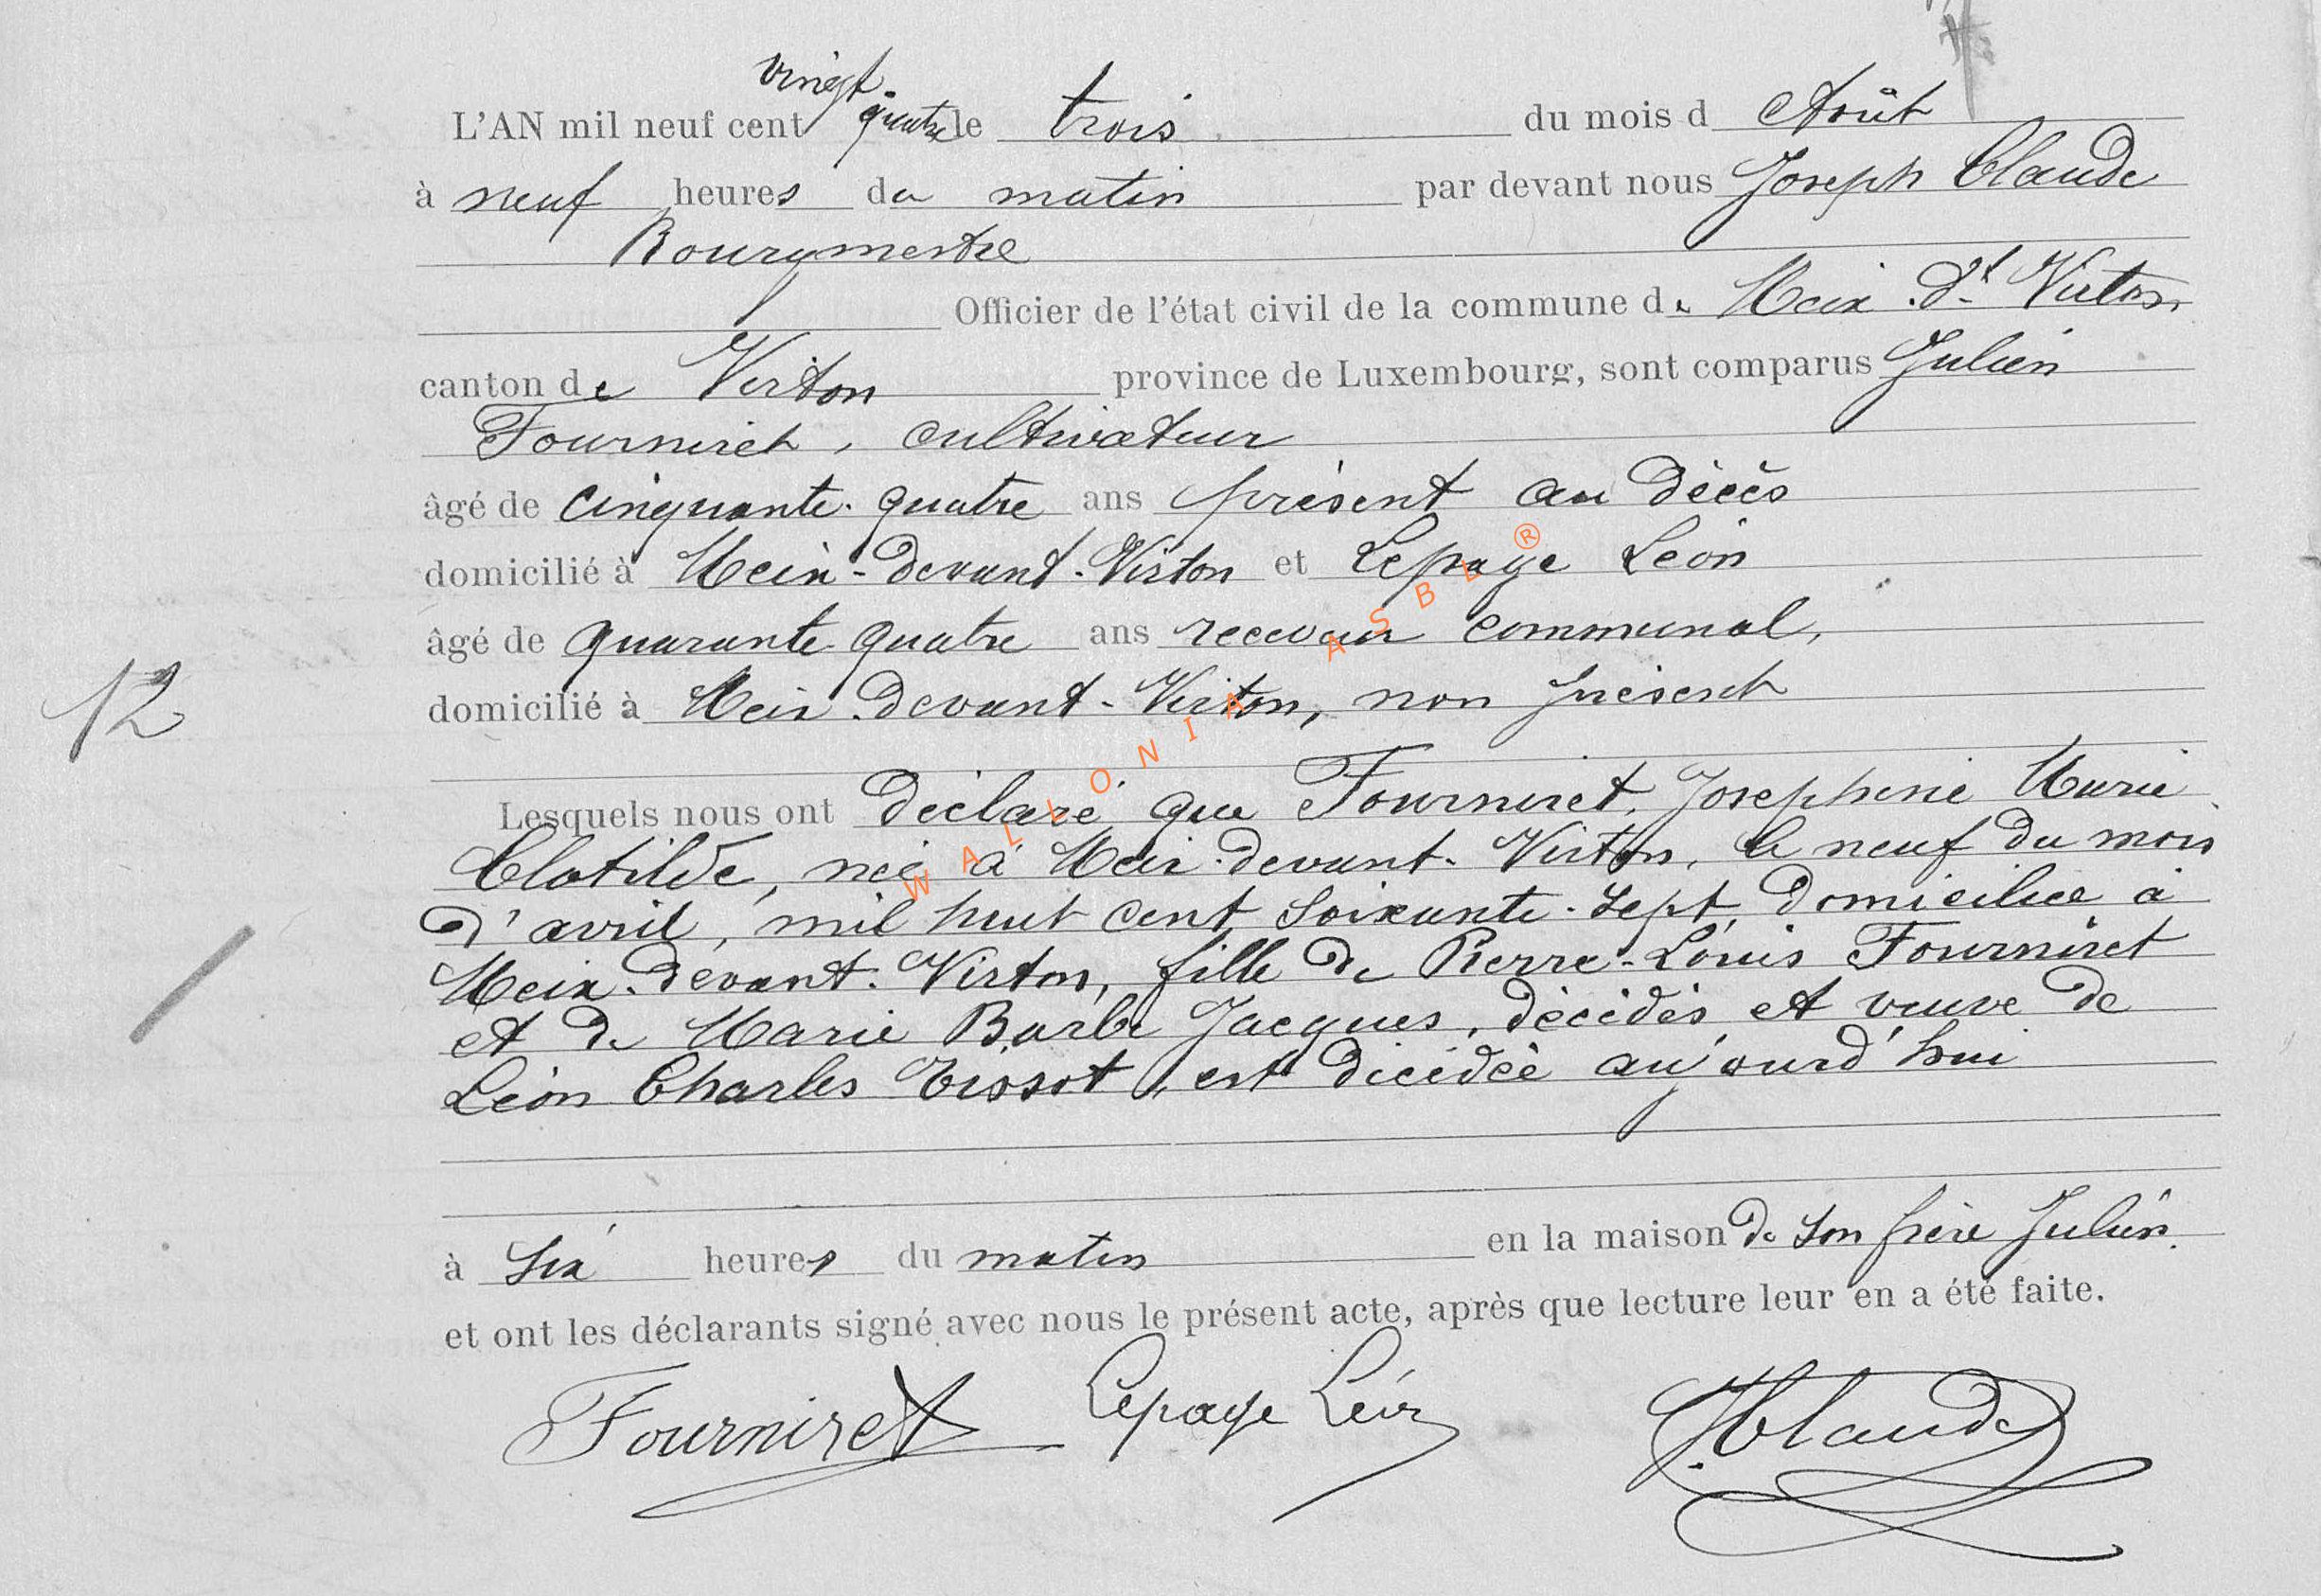 vingt
L'AN mil neuf cent quatre le trois du mois d Août
à neuf heures du matin par devant nous Joseph Claude
Bourgmestre
Officier de l'état civil de la commune de Meix-dt Virton
canton de Virton province de Luxembourg, sont comparus Julien
Fourniret, cultivateur
âgé de cinquante-quatre ans présent au décès
domicilié à Meix-devant-Virton et Lepage Léon
âgé de quarante-quatre ans receveur communal,
domicilié à Meix-devant-Virton, non présent
12
Lesquels nous ont déclaré que Fourniret, Josephine Marie
Clotilde, née à Meix-devant-Virton, le neuf du mois
d'avril, mil huit cent soixante-sept, domiciliée à
Meix-devant-Virton, fille de Pierre-Louis Fourniret
et de Marie Barbe Jacques, décédés et veuve de
Léon Charles Tissot, est décédée aujourd'hui
à six heures du matin en la maison de son frère Julien.
et ont les déclarants signé avec nous le présent acte, après que lecture leur en a été faite.
Fourniret Lepage Léon J Claude
WALLONIA ASBL ®